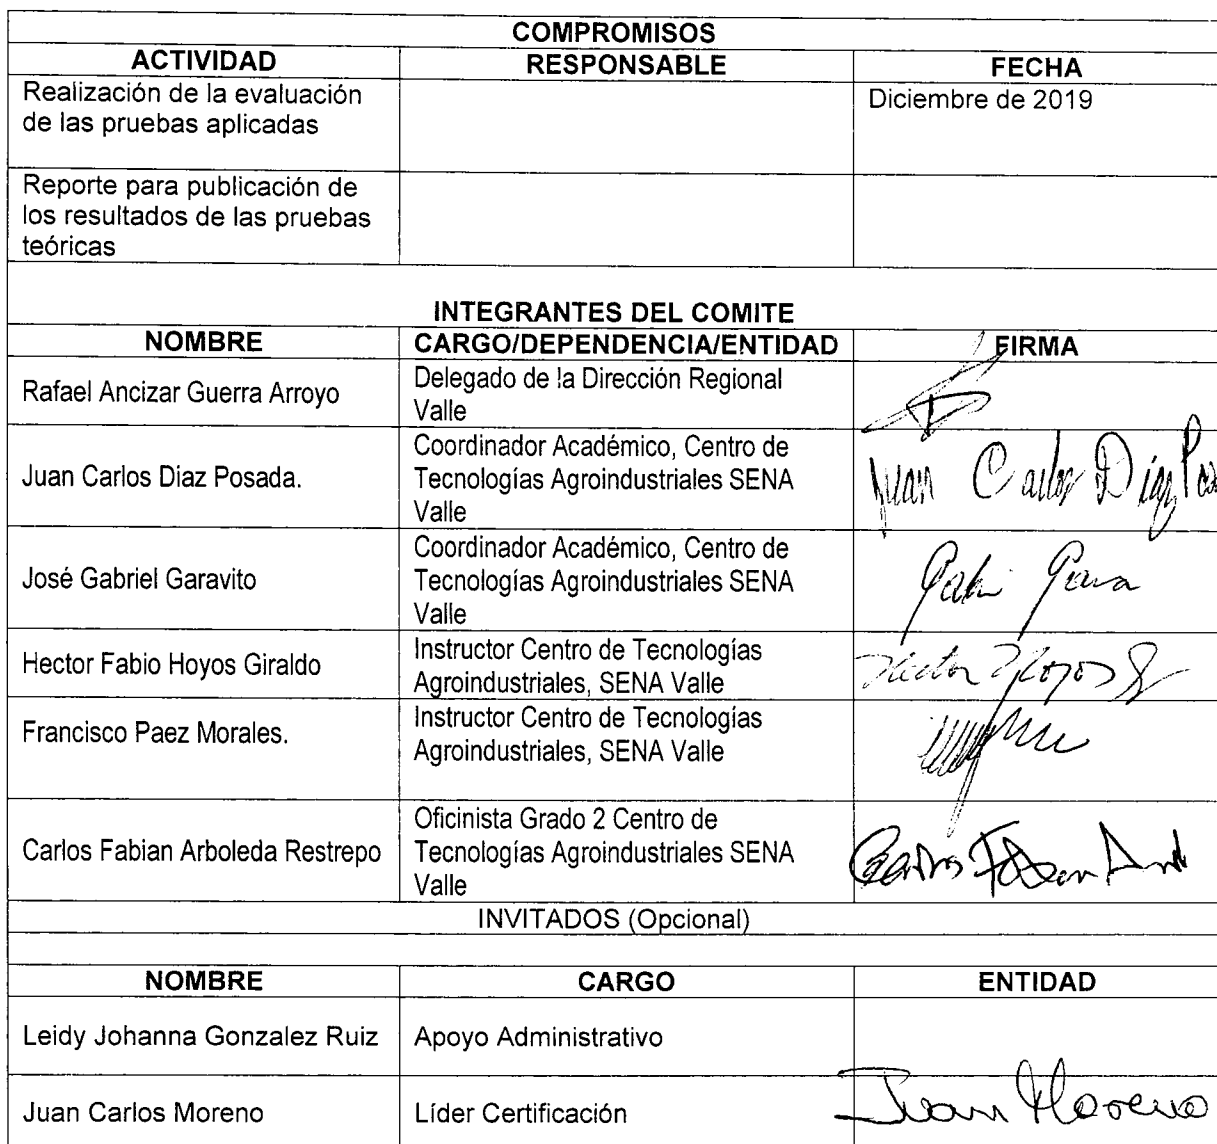 COMPROMISOS
ACTIVIDAD RESPONSABLE FECHA
Realización de la evaluación Diciembre de 2019
de las pruebas aplicadas
Reporte para publicación de
los resultados de las pruebas
teóricas
INTEGRANTES DEL COMITE
NOMBRE CARGO/DEPENDENCIA/ENTIDAD FIRMA
Rafael Ancizar Guerra Arroyo
Delegado de la Dirección Regional
Valle
Juan Carlos Diaz Posada.
Coordinador Académico, Centro de
Tecnologías Agroindustriales SENA
Valle
Juan Carlos Diaz Pos
José Gabriel Garavito
Coordinador Académico, Centro de
Tecnologías Agroindustriales SENA
Valle
Hector Fabio Hoyos Giraldo
Instructor Centro de Tecnologías
Agroindustriales, SENA Valle
Hector Hoyos G
Francisco Paez Morales.
Instructor Centro de Tecnologías
Agroindustriales, SENA Valle
Carlos Fabian Arboleda Restrepo
Oficinista Grado 2 Centro de
Tecnologías Agroindustriales SENA
Valle
Carlos Fabian
INVITADOS (Opcional)
NOMBRE CARGO ENTIDAD
Leidy Johanna Gonzalez Ruiz Apoyo Administrativo
Juan Carlos Moreno Líder Certificación Juan Moreno